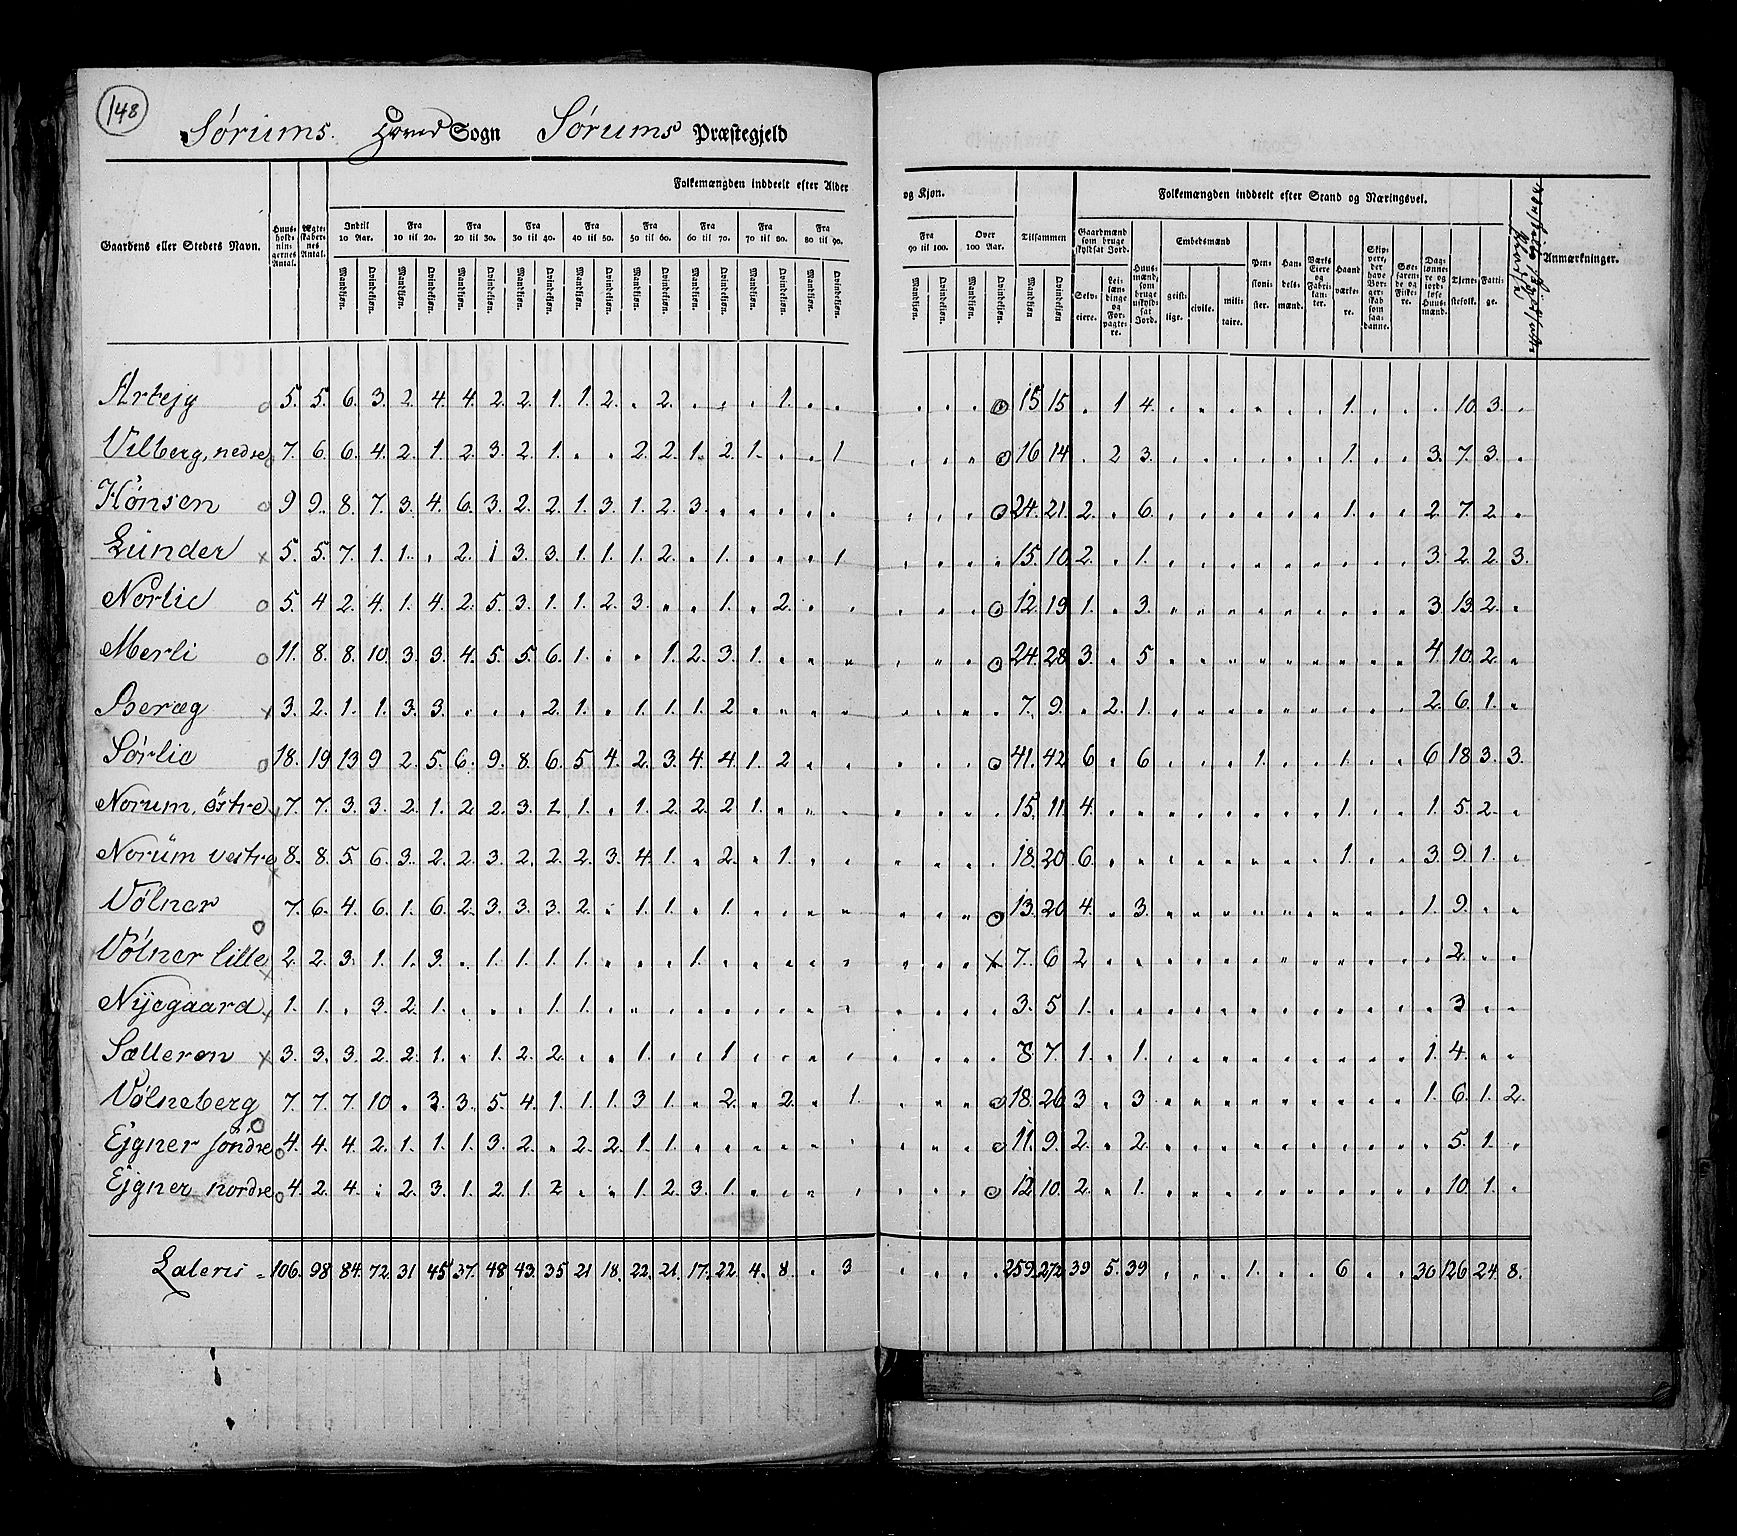 148
Sørums. Hoved Sogn Sørums Præstegjeld
Folkemængden inddeelt efter Alder og Kjøn. Tilsammen Folkemængden inddeelt efter Stand og Næringsvei.
Gaardens eller Stedets Navn. Huus-holdnin-gernes Antal. Ægte-skaber-nes Antal. Indtil 10 Aar. Fra 10 til 20. Fra 20 til 30. Fra 30 til 40. Fra 40 til 50. Fra 50 til 60. Fra 60 til 70. Fra 70 til 80. Fra 80 til 90. Fra 90 til 100. Over 100 Aar. Gaardmænd som bruge skyldsat Jord. Huus-mænd, som bruge uskyld-sat Jord. Embedsmænd Pen-sioni-ster. Han-dels-mænd. Værks Eiere og Fabri-kan-ter. Haand-værke-re. Skip-pere, der have Bor-ger-skab som saa-danne. Søe-faren-de og Fiske-re. Dag-lønne-re og jord-løse Huus-mænd. Tjene-stefolk. Fatti-ge. Anmærkninger.
Mandkjøn. Qvindekjøn. Selv-eiere. Lei-læn-dinge og For-pagte-re. geist-lige. civile. mili-taire.
Artejg o 5. 5. 6. 3. 2. 4. 4. 2. 2. 1. 1. 2. . 2. . . . 1. . . . . . o 15. 15. . 1 4. . . . . . . 1. . . . 10. 3. .
Vilberg, nedre o 7. 6. 6. 4. 2. 1. 2. 3. 2. 1. . . 2. 2. 1. 2. 1. . . 1 . . . o 16 14. . 2 3. . . . . . . 1. . . 3. 7. 3. .
Hønsen o 9 9. 8. 7. 3. 4. 6. 3. 2. 2. 1. 3. 1. 2. 3. . . . . . . . . o 24. 21. 2. . 6. . . . . . . 1. . . 2 7. 2. .
Lunder x 5. 5. 7. 1. 1. . 2. 1 3. 3. 1. 1. 1. 2. . 1. . . . 1 . . . . 15. 10. 2. . 1. . . . . . . . . . 3. 2. 2. 3.
Norlie o 5. 4. 2. 4. 1. 4. 2. 5. 3. 1. 1. 2. 3. . . 1. . 2. . . . . . o 12. 19 1. . 3. . . . . . . . . . 3 13. 2. .
Merli o 11. 8. 8. 10. 3. 3. 4. 5. 5. 6. 1. . . 1. 2. 3. 1. . . . . . . o 24. 28 3. . 5 . . . . . . . . . 4 10. 2. .
Beræg x 3. 2. 1. 1. 3. 3. . . . 2. 1. . 1. 1. 1. 2. . . . . . . . . 7. 9. . 2. 1. . . . . . . . . . 2. 6. 1. .
Sørlie o 18. 19 13 9 2. 5. 6. 9. 8. 6. 5. 4. 2. 3. 4. 4. 1. 2. . . . . . o 41. 42 6 . 6 . . . 1. . . 1. . . 6 18. 3. 3.
Norum, østre x 7. 7. 3. 3. 2. 1. 2. 2. 3. 1. 1. . 1. 2. 2. 2. 1. . . . . . . . 15. 11. 4. . . . . . . . . 1. . . 1. 5. 2. .
Norum vestre x 8. 8. 5. 6. 3. 2. 2. 3. 2. 2. 2. 3. 4. 1. . 2. . 1. . . . . . . 18. 20 6. . . . . . . . . 1. . . 3. 9. 1. .
Vølner o 7. 6. 4. 6. 1. 6. 2. 3. 3. 3. 2. . 1. 1. . 1. . . . . . . . o 13. 20 4. . 3. . . . . . . . . . 1. 9. . .
Vølner lille x 2. 2. 3. 1. 1. 3. . 1. 1. 1. 1. . . . 1. . . . . . . . . x 7. 6 2. . . . . . . . . . . . . 2. . .
Nyegaard x 1. 1. . 3. 2. 1. . . . 1. 1. . . . . . . . . . . . . . 3. 5. 1. . . . . . . . . . . . . 3 . .
Sælleron x 3. 3. 3. 2. 2. 1. . 1. 2. 2. . . 1. . . 1. . . . . . . . . 8. 7. 1. . 1. . . . . . . . . . 1. 4. . .
Vølneberg o 7. 7. 7. 10. . 3. 3. 5. 4. 1. 1. 1. 3 1. . 2. . 2. . 1. . . . o 18. 26 3. . 3 . . . . . . . . . 1. 6. 1. 2.
Ejgner søndre o 4. 4. 4. 2. 1. 1. 1. 3. 2. . 2. 2. 1. 1. . . . . . . . . . o 11. 9. 2. . 2. . . . . . . . . . . 5. 1. .
Ejgner nordre o 4. 2. 4. . 2. 3. 1. 2. 1. 2 . . 1. 2. 3. 1. . . . . . . . o 12. 10. 2. . 1. . . . . . . . . . . 10. 1. .
Lateris 106. 98. 84. 72. 31 45. 37. 48. 43. 35. 21 18. 22. 21. 17. 22. 4. 8 . 3 . . . . 259. 272 39 5. 39 . . . 1. . . 6 . . 30 126 24. 8.